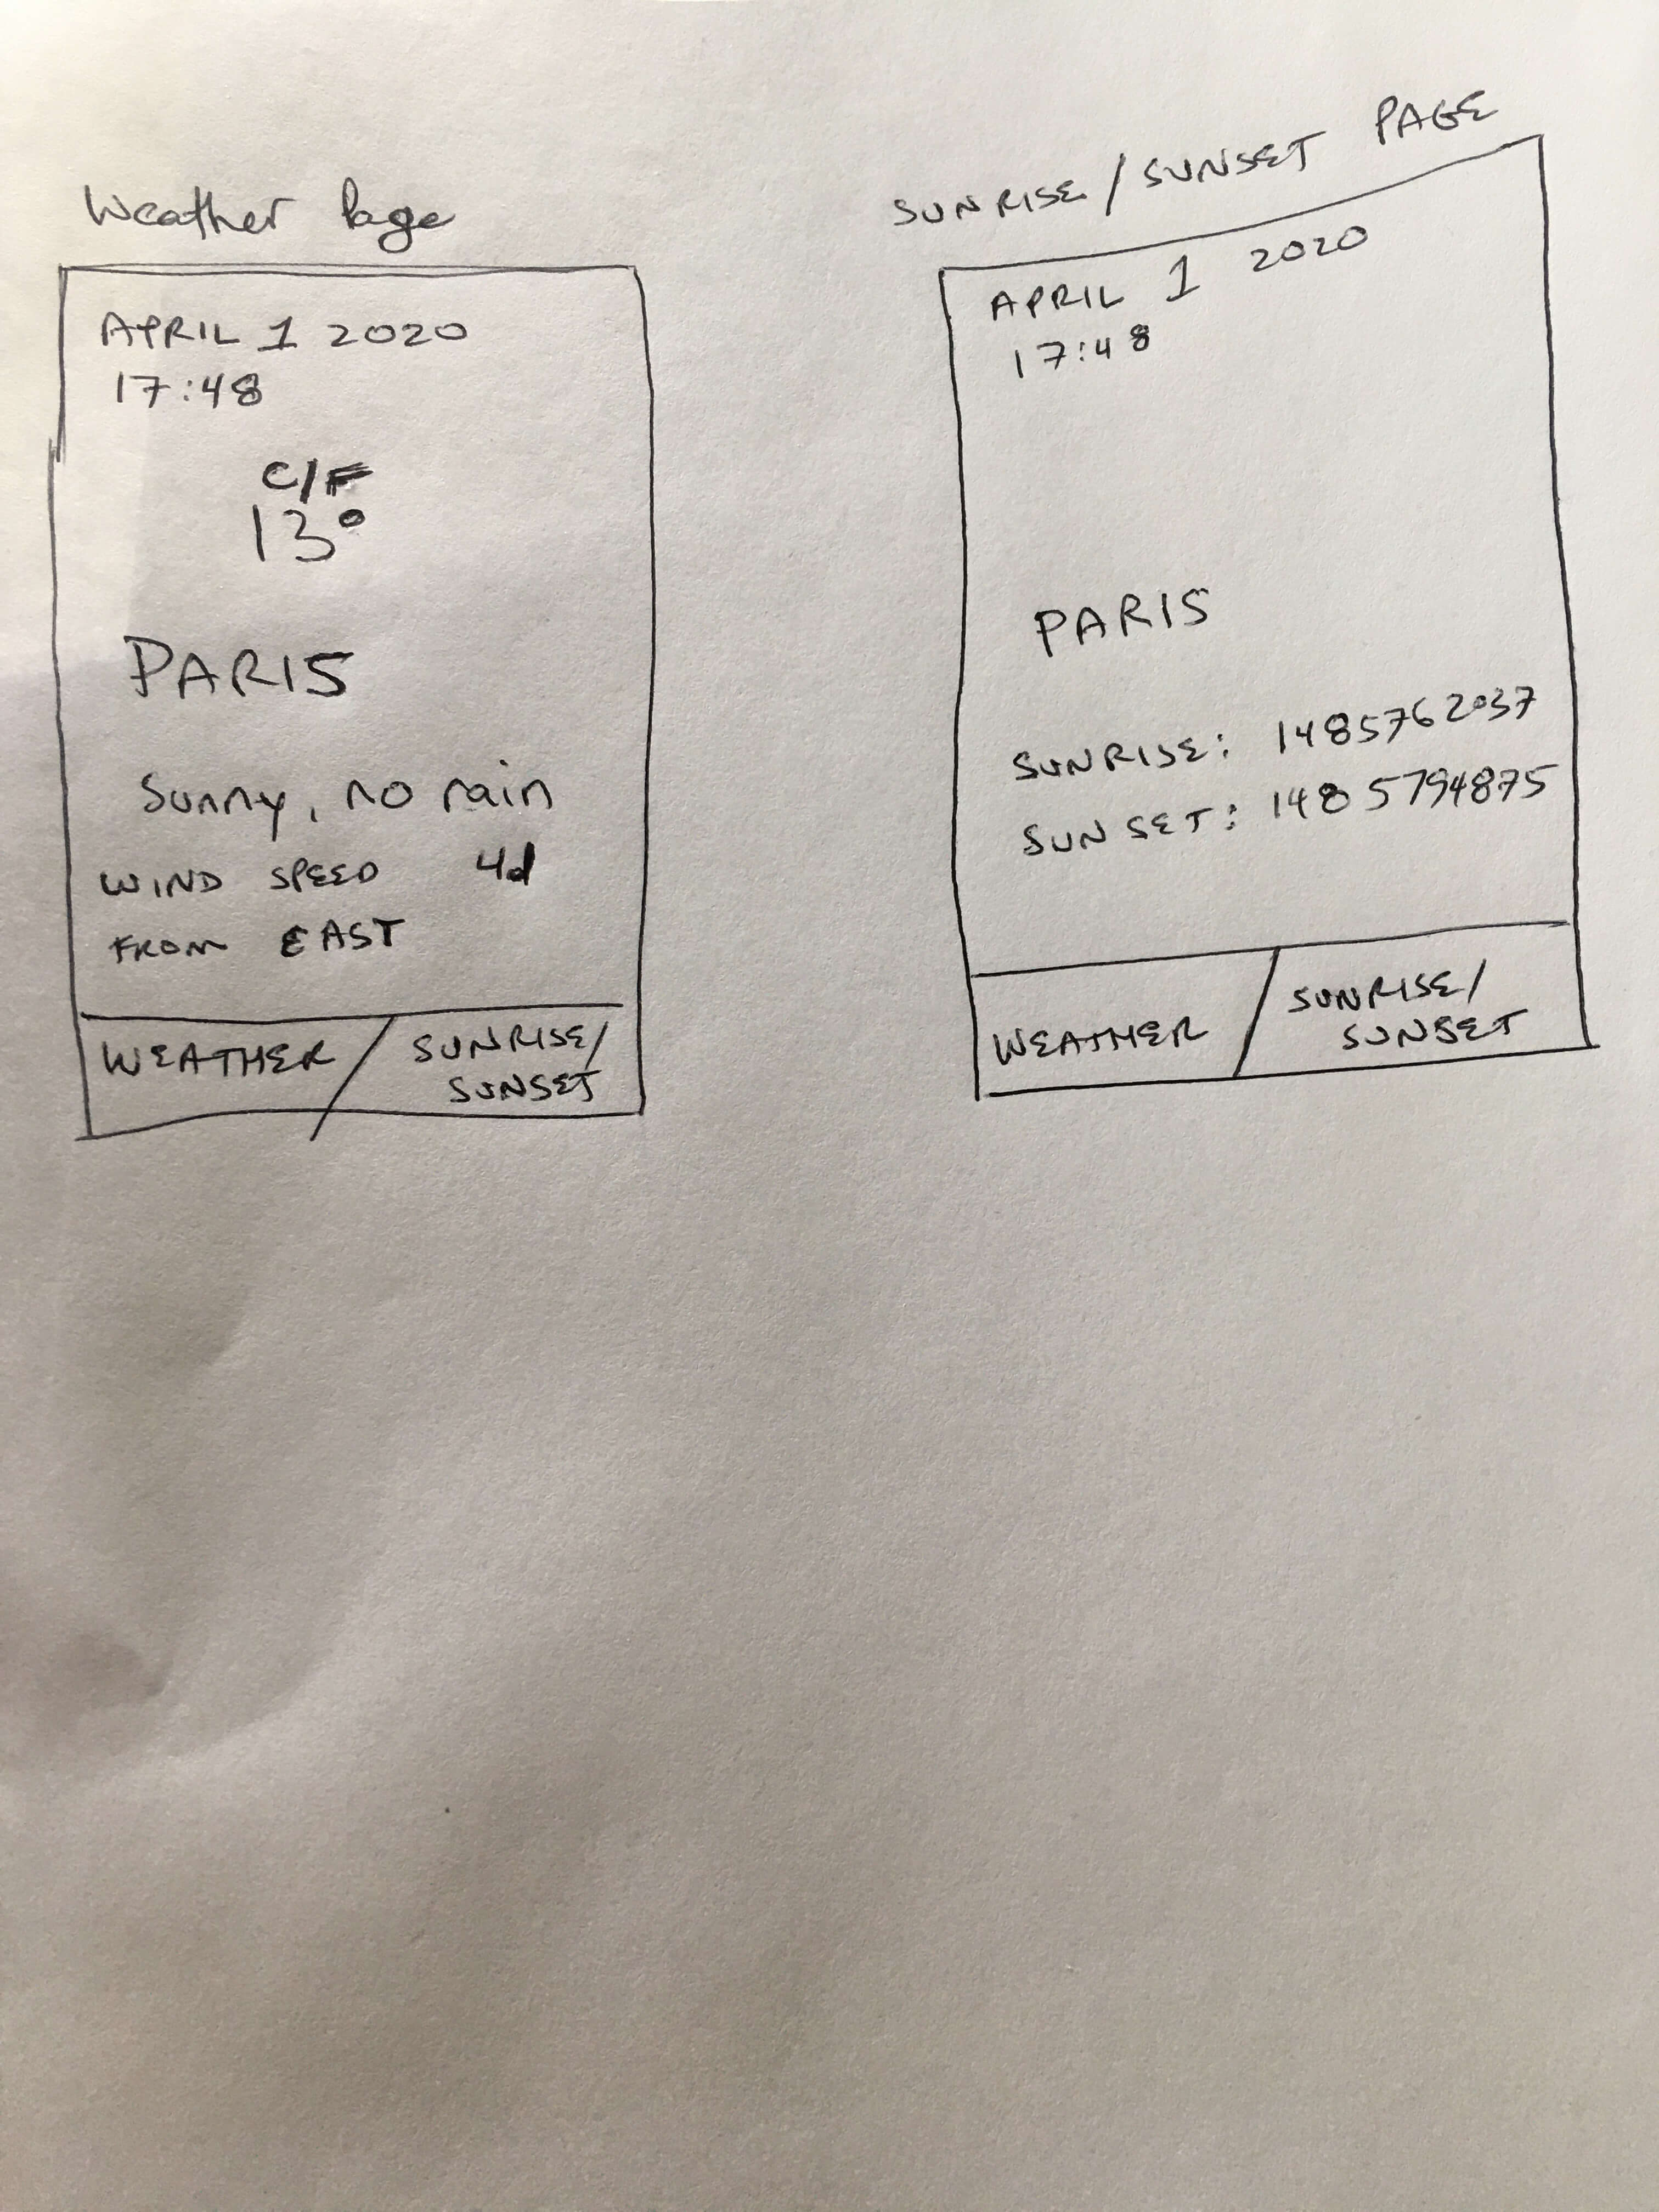 Weather Page
APRIL 1 2020
17:48
C/F
13°
PARIS
Sunny, no rain
WIND SPEED 4d
FROM EAST
WEATHER / SUNRISE/
SUNSET
SUNRISE / SUNSET PAGE
APRIL 1 2020
17:48
PARIS
SUNRISE: 1485762037
SUNSET: 1485794875
WEATHER / SUNRISE/
SUNSET